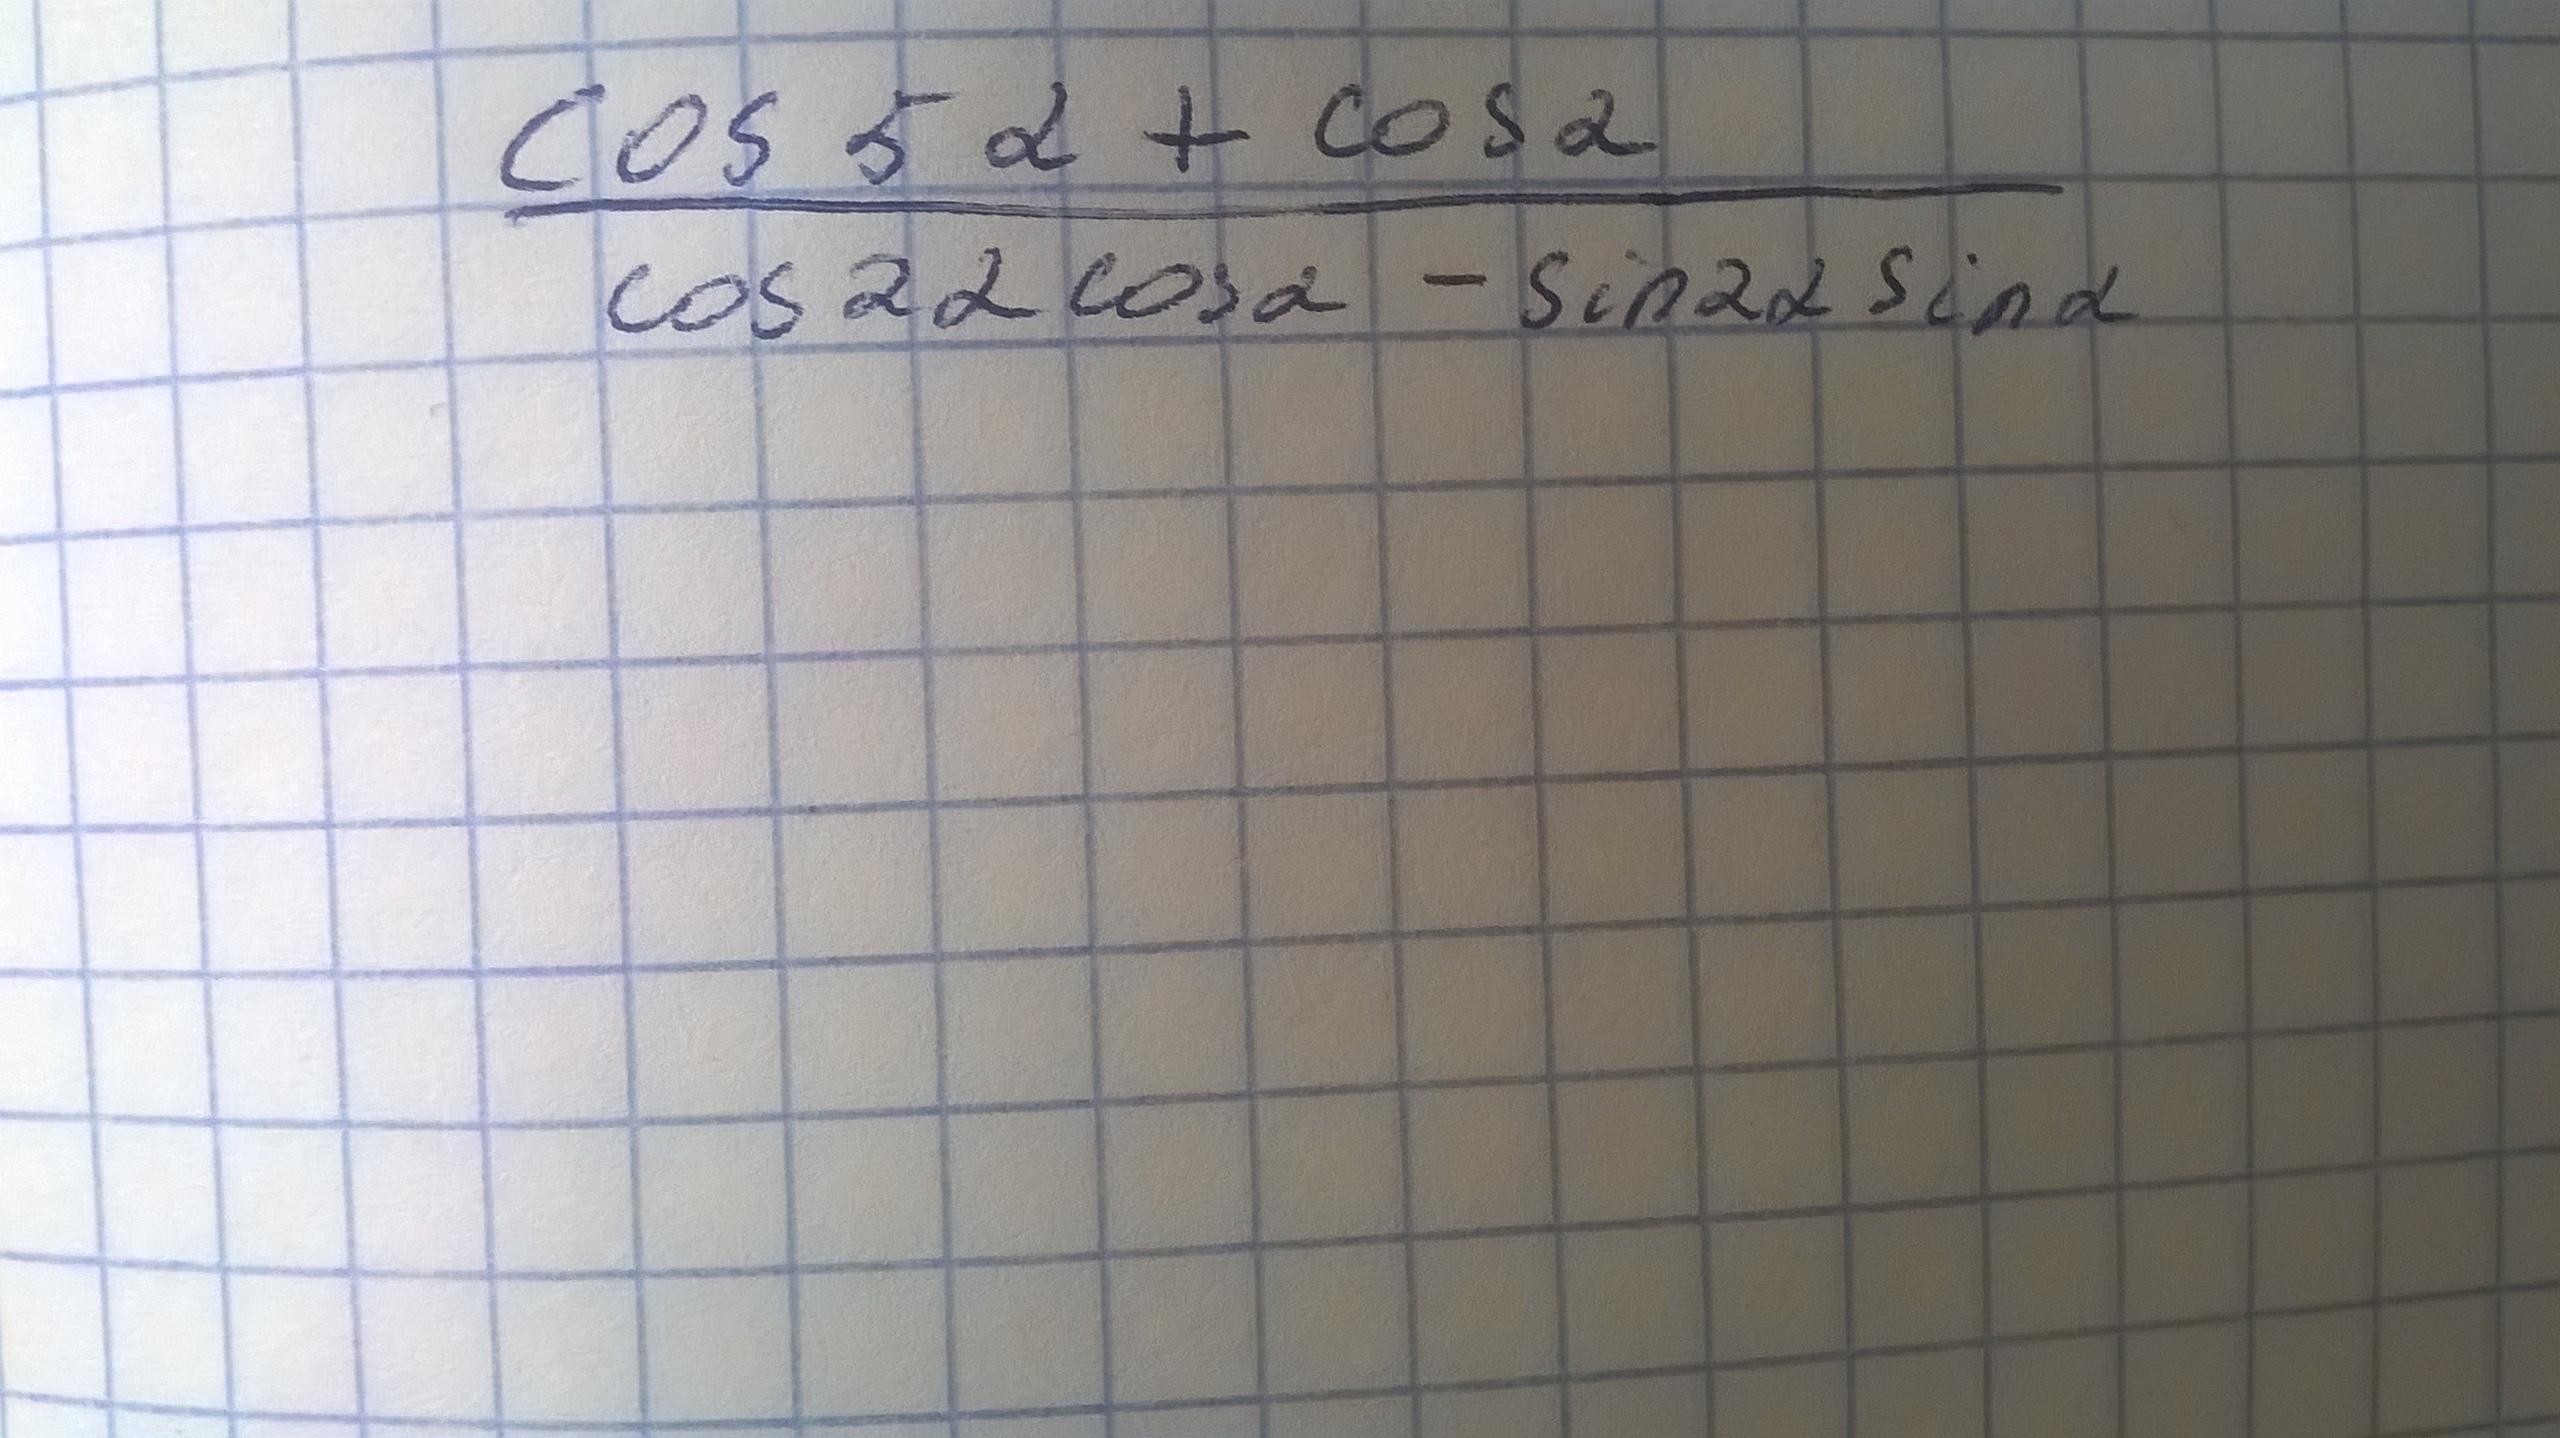 cos 5α + cos α
cos 2α cos α - sin 2α sin α